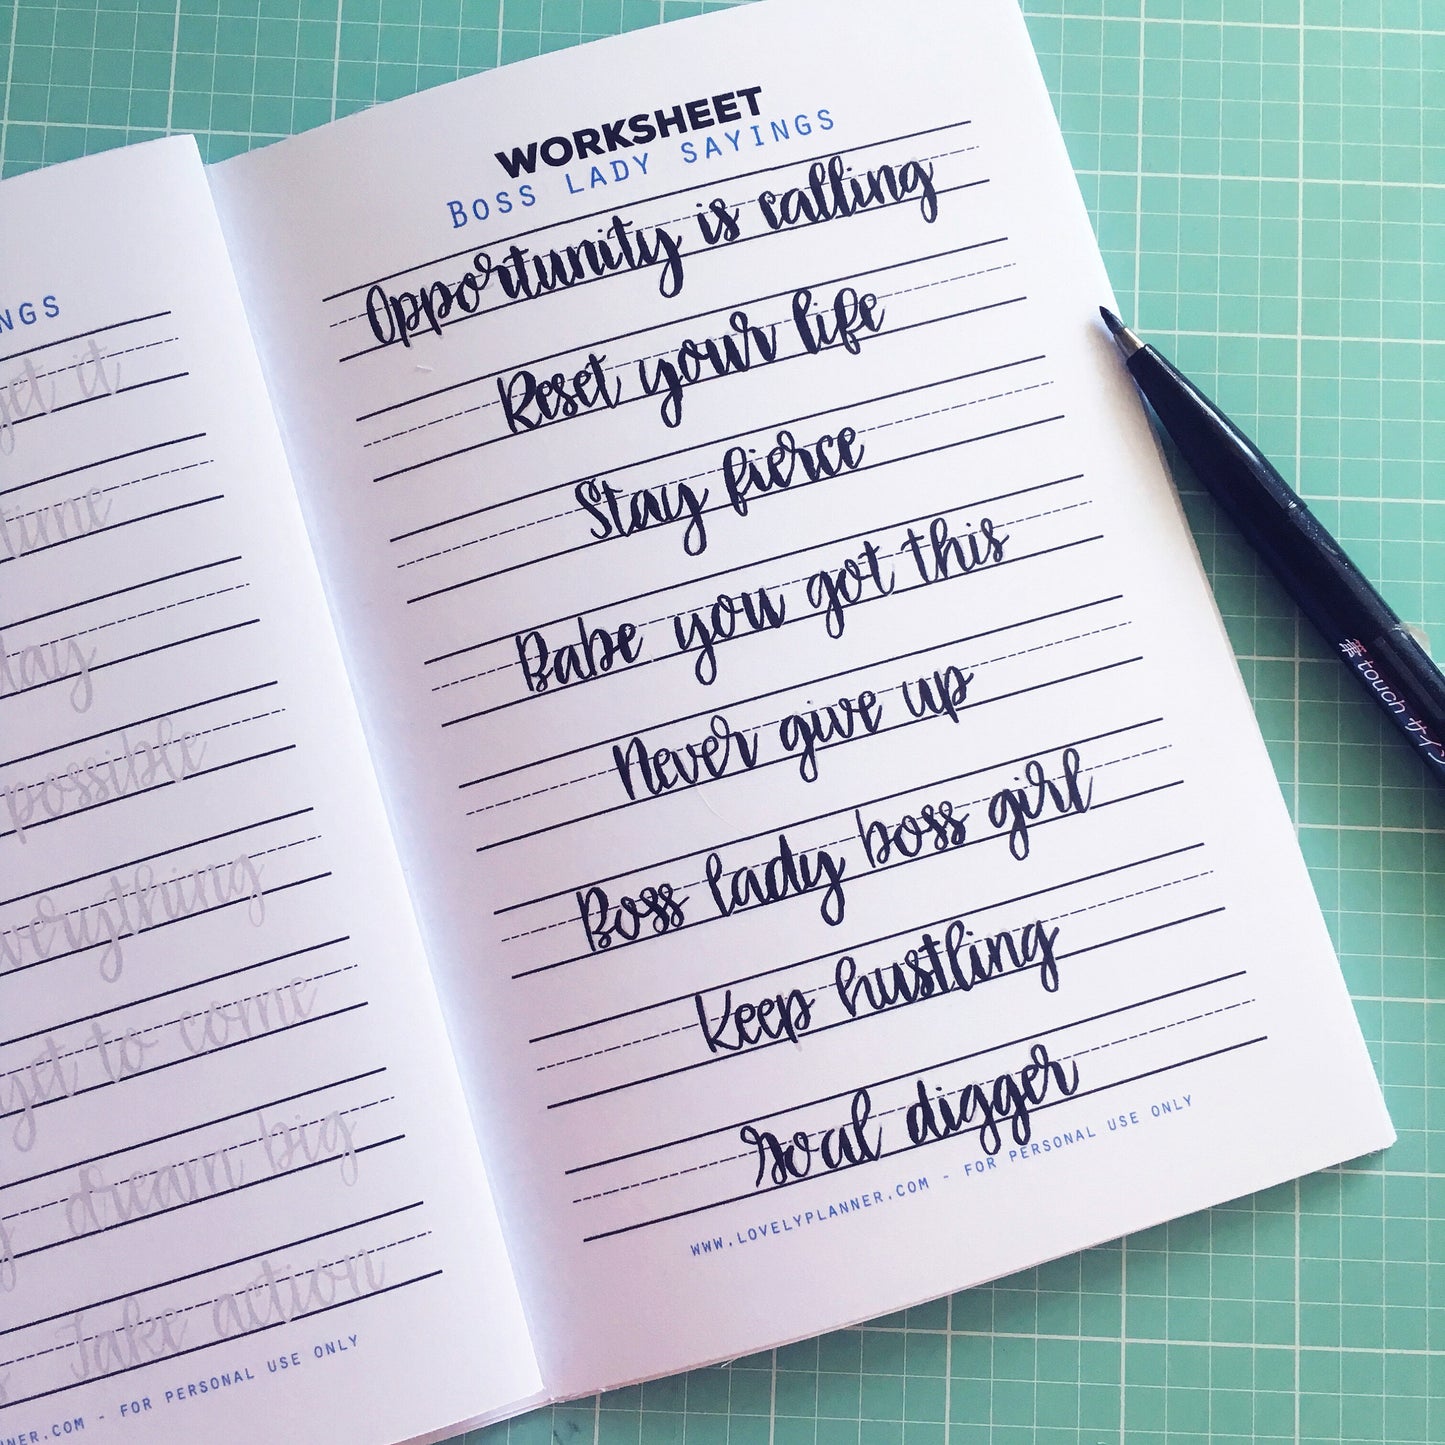 NGS
get it
time
day
possible
everything
yet to come
dream big
Take action
.COM - FOR PERSONAL USE ONLY
WORKSHEET
BOSS LADY SAYINGS
Opportunity is calling
Reset your life
Stay fierce
Babe you got this
Never give up
Boss lady boss girl
Keep hustling
Goal digger
WWW.LOVELYPLANNER.COM - FOR PERSONAL USE ONLY
筆touch サイン